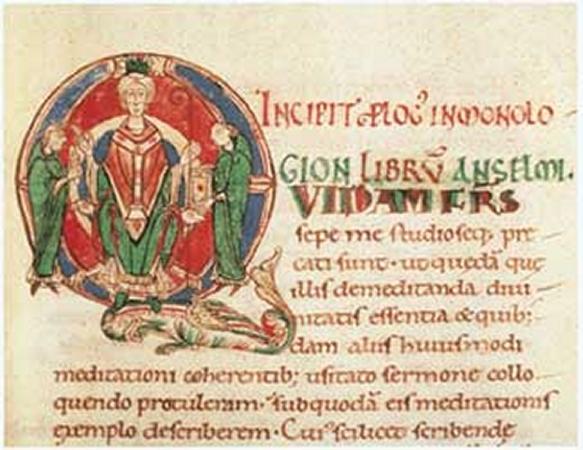 INCIPIT PLOG' IN MONOLO-
GION LIBRŪ ANSELMI.
QVIDAM FR̄S
sepe me studioseq; pre-
cati sunt· ut quedā que
illis de meditanda diui-
nitatis essentia & quib;
dam aliis huiusmodi
meditationi coherentib; usitato sermone collo-
quendo protuleram· sub quodā eis meditationis
exemplo describerem· Cui' scilicet scribende